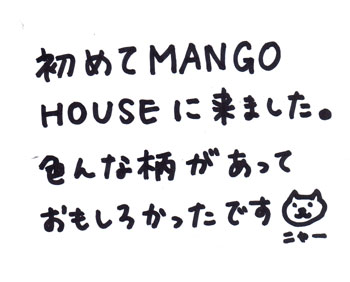 初めてMANGO
HOUSEに来ました。
色んな柄があって
おもしろかったです
ニャー